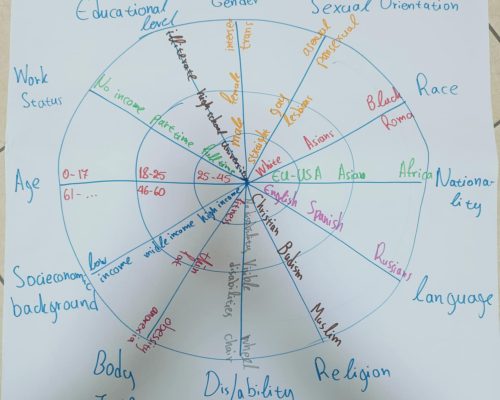 Educational level
Gender
Sexual Orientation
Race
Nationality
language
Religion
Dis/ability
Body
Socioeconomic background
Age
Work Status
illiterate high school university
trans
female
male
asexual
pansexual
gay
lesbians
straight
Black
Roma
Asians
White
EU-USA Asian Africa
English Spanish Russians
Christian Budism Muslim
Visible disabilities wheel chair
fitness
thin
fat
obesity
anorexia
Low income middle income high income
0-17 18-25 25-45
61-... 46-60
No income part time full time